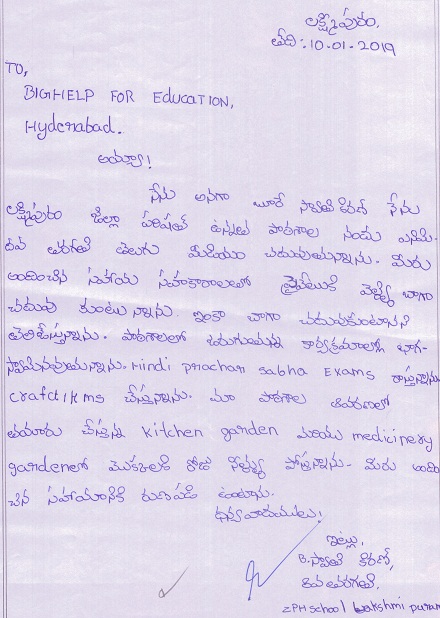 లక్ష్మీపురం,
తేది:-10-01-2019
TO,
BIGHELP FOR Education,
Hyderabad.
అయ్యా!
నేను అనగా బూరే స్వాతి కిరణ్ నేను
లక్ష్మీపురం జిల్లా పరిషత్ ఉన్నత పాఠశాల నందు ఎనిమి-
దవ తరగతి తెలుగు మీడియం చదువుతున్నాను. మీరు
అందించిన సహాయ సహకారాలతో ప్రైవేటుకి వెళ్ళి బాగా
చదువు కుంటున్నాను. ఇంకా బాగా చదువుకుంటానని
తెలిపుతున్నాను. పాఠశాలలో జరుగుతున్న కార్యక్రమాలలో భాగ-
స్వామినవుతున్నాను. Hindi prachar sabha Exams రాస్తున్నాను
చేస్తున్నాను. మా పాఠశాల ఆవరణలో
తయారు చేస్తున్న kitchen garden మరియు medicinery
gardenలో మొక్కలకి రోజు నీళ్ళు పోస్తున్నాను- మీరు అంది
చిన సహాయానికి రుణపడి ఉంటాను.
ధన్యవాదములు!
ఇట్లు,
B.స్వాతి కిరణ్,
8వ తరగతి,
ZPH school Lakshmi puram